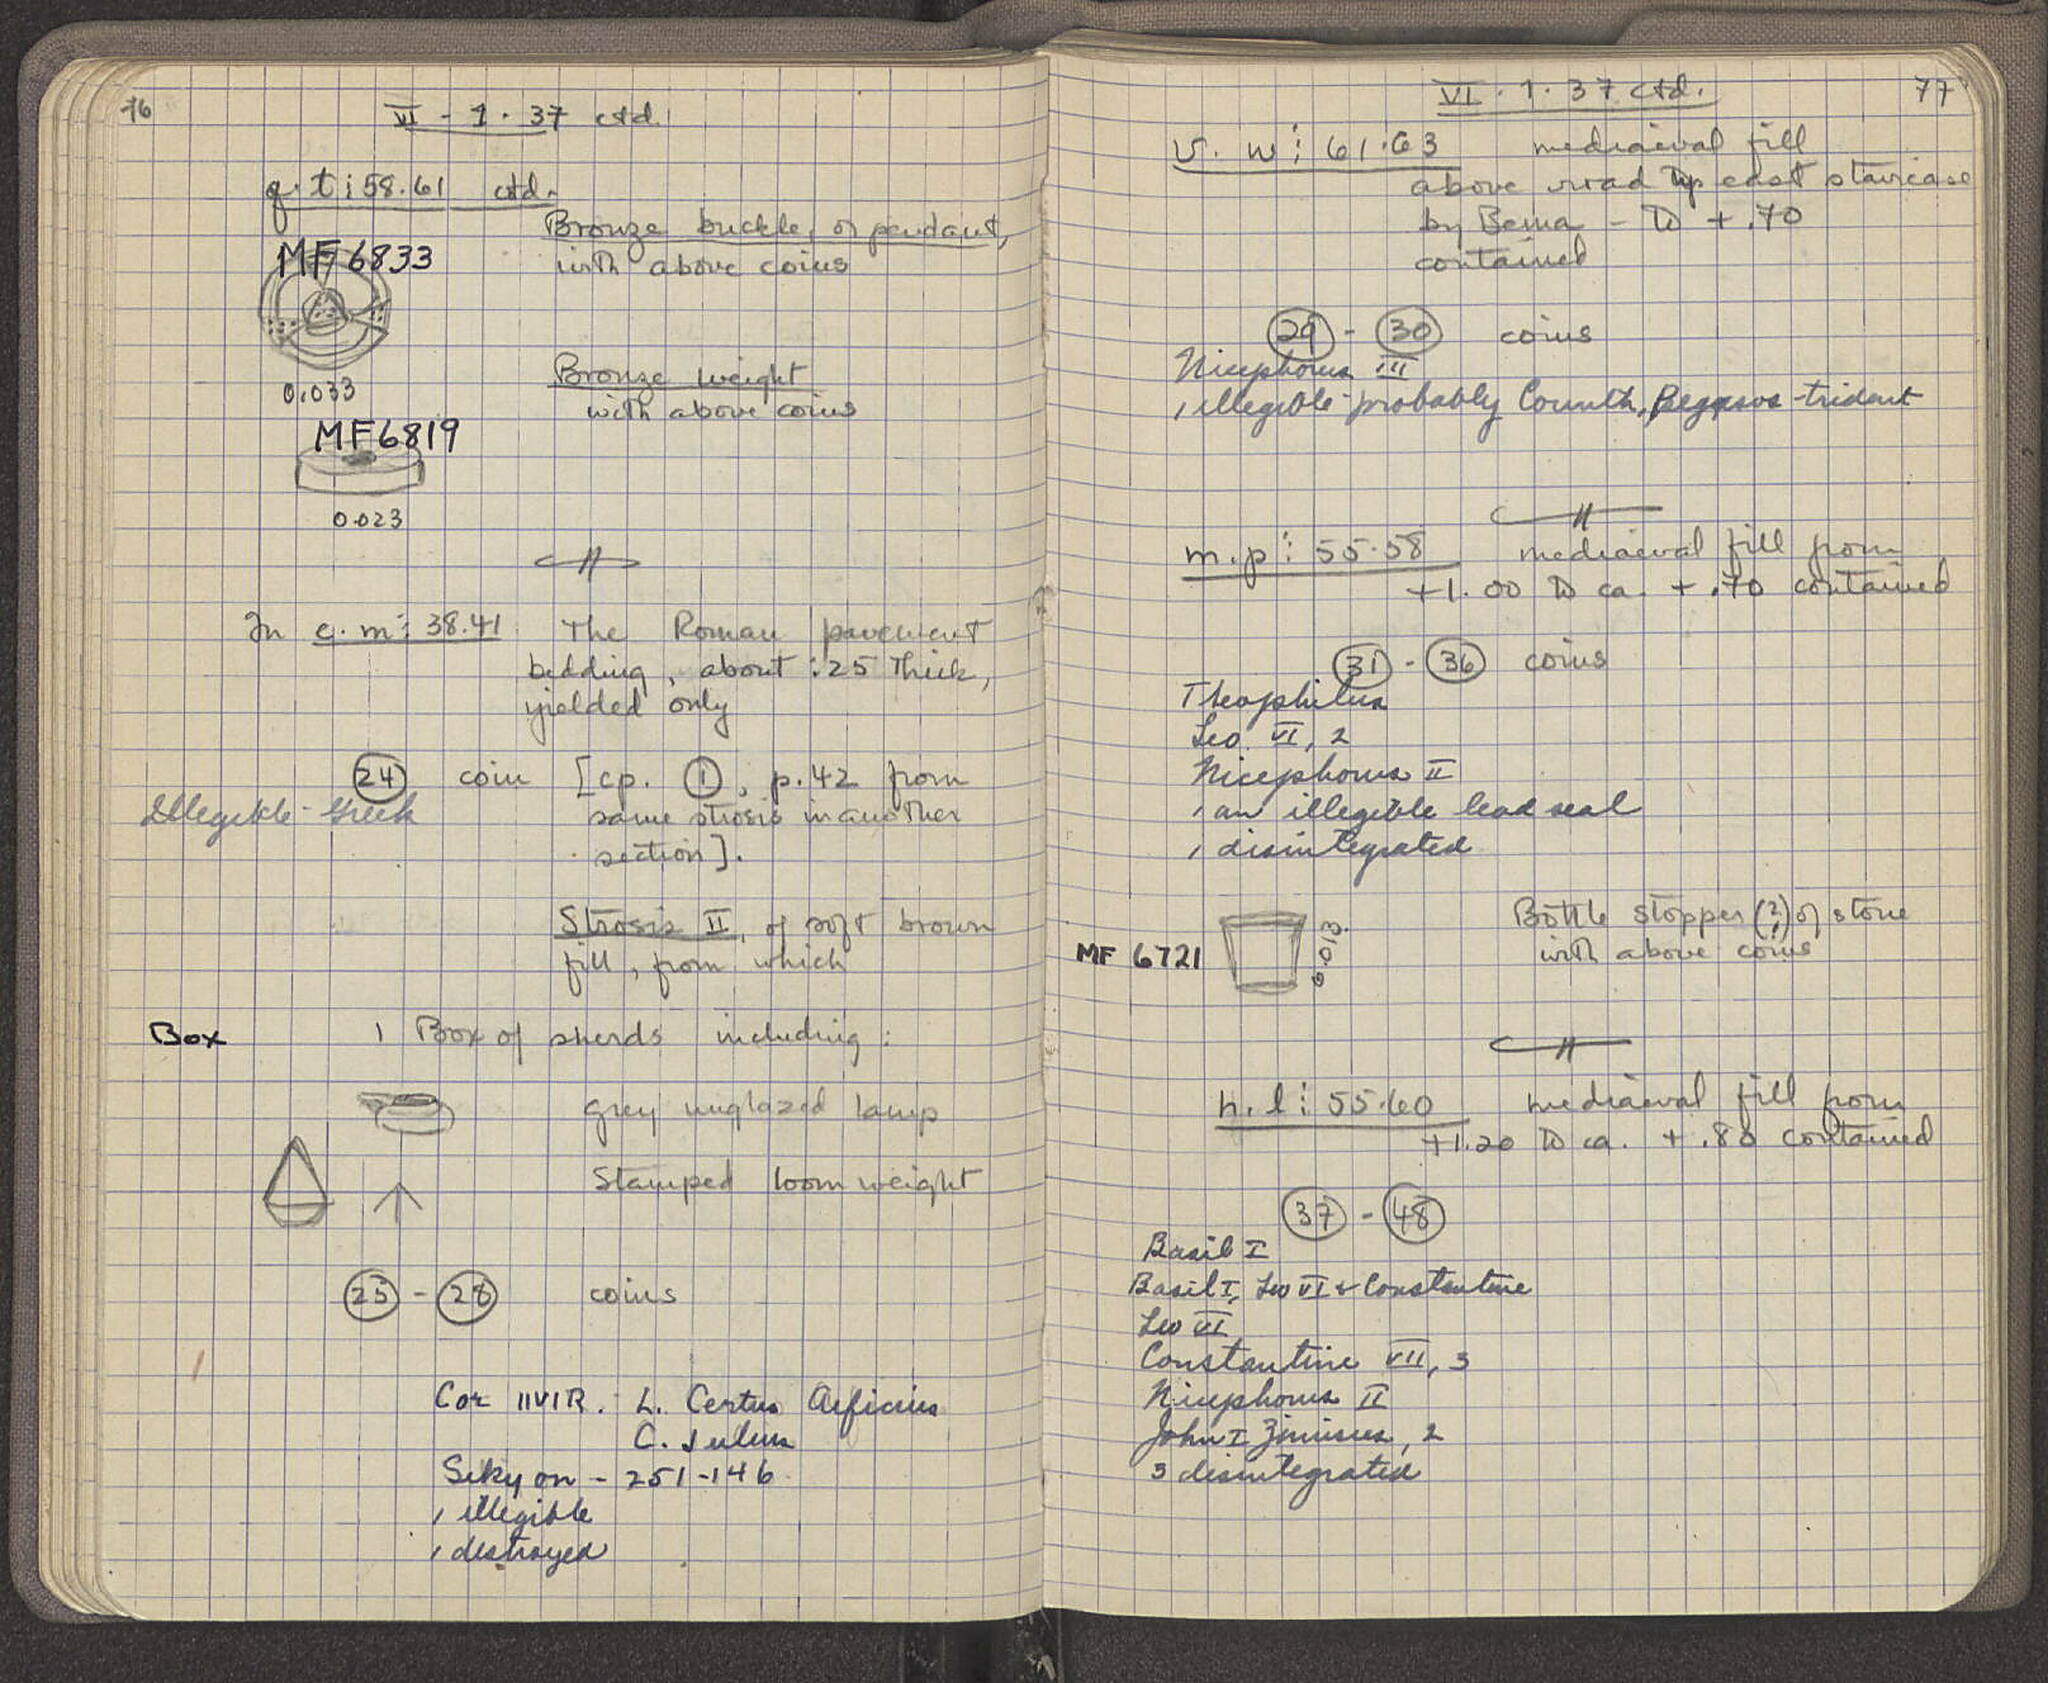 76
VI - 1 · 37 ctd.
q · t : 58 · 61 ctd.
Bronze buckle, or pendant,
with above coins
MF 6833
0.033
Bronze weight
with above coins
MF 6819
0.023
In g · m : 38 · 41 The Roman pavement
bedding, about .25 thick,
yielded only
24 coin [cp. 1, p. 42 from
same strosis in another
section].
Illegible - Greek
Strosis II, of soft brown
fill, from which
Box 1 Box of sherds including :
Grey unglazed lamp
Stamped loomweight
25 - 28 coins
Cor IIVIR. L. Certus Aeficius
C. Julius
Sikyon - 251-146
1 illegible
1 destroyed
77
VI · 1 · 37 ctd.
v · w : 61 · 63 mediaeval fill
above road up east staircase
by Bema - to + .70
contained
29 - 30 coins
Nicephorus III
1 illegible - probably Corinth, Pegasos - trident
m · p : 55 · 58 mediaeval fill from
+1.00 to ca. + .70 contained
31 - 36 coins
Theophilus
Leo VI, 2
Nicephorus II
1 an illegible lead seal
1 disintegrated
Bottle stopper (?) of stone
with above coins
MF 6721
0.013
h · l : 55 · 60 mediaeval fill from
+1.20 to ca. + .80 contained
37 - 48
Basil I
Basil I, Leo VI + Constantine
Leo VI
Constantine VII, 3
Nicephorus II
John I Zimisces, 2
3 disintegrated